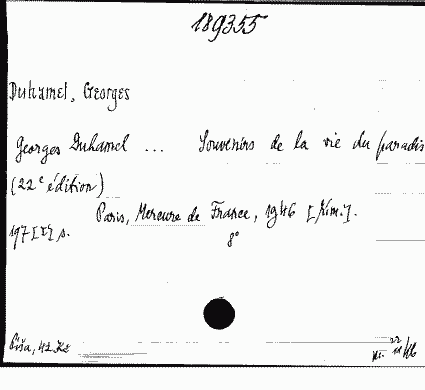 189355
Duhamel, Georges
Georges Duhamel ... Souvenirs de la vie du paradis
(22e édition)
Paris, Mercure de France, 1946
8°